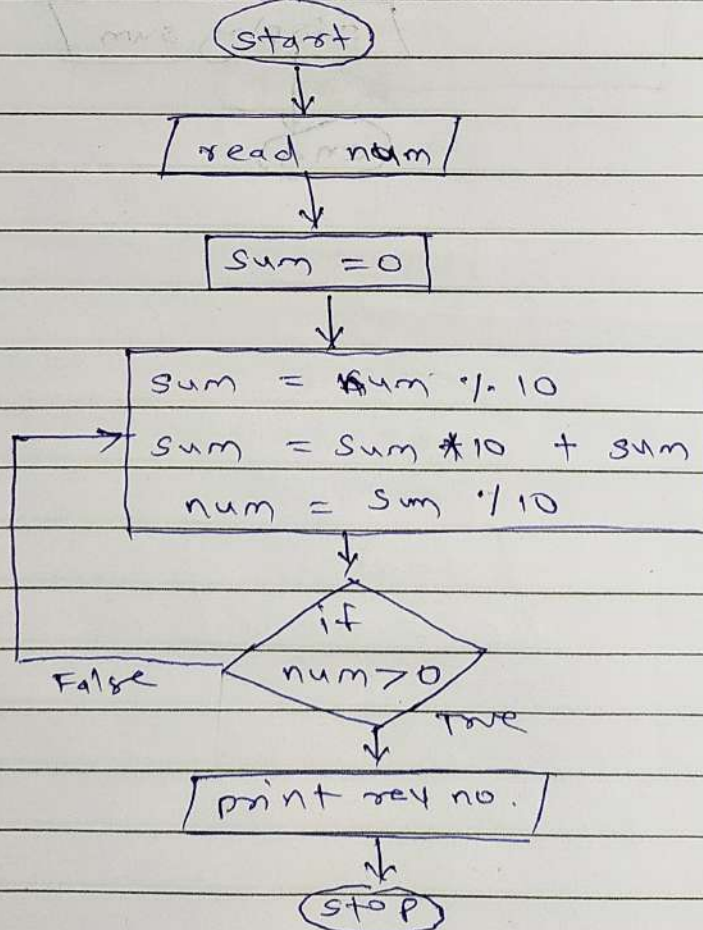 start
read num
sum = 0
sum = num % 10
sum = sum * 10 + sum
num = sum % 10
if
num > 0
False
True
print rev no.
stop